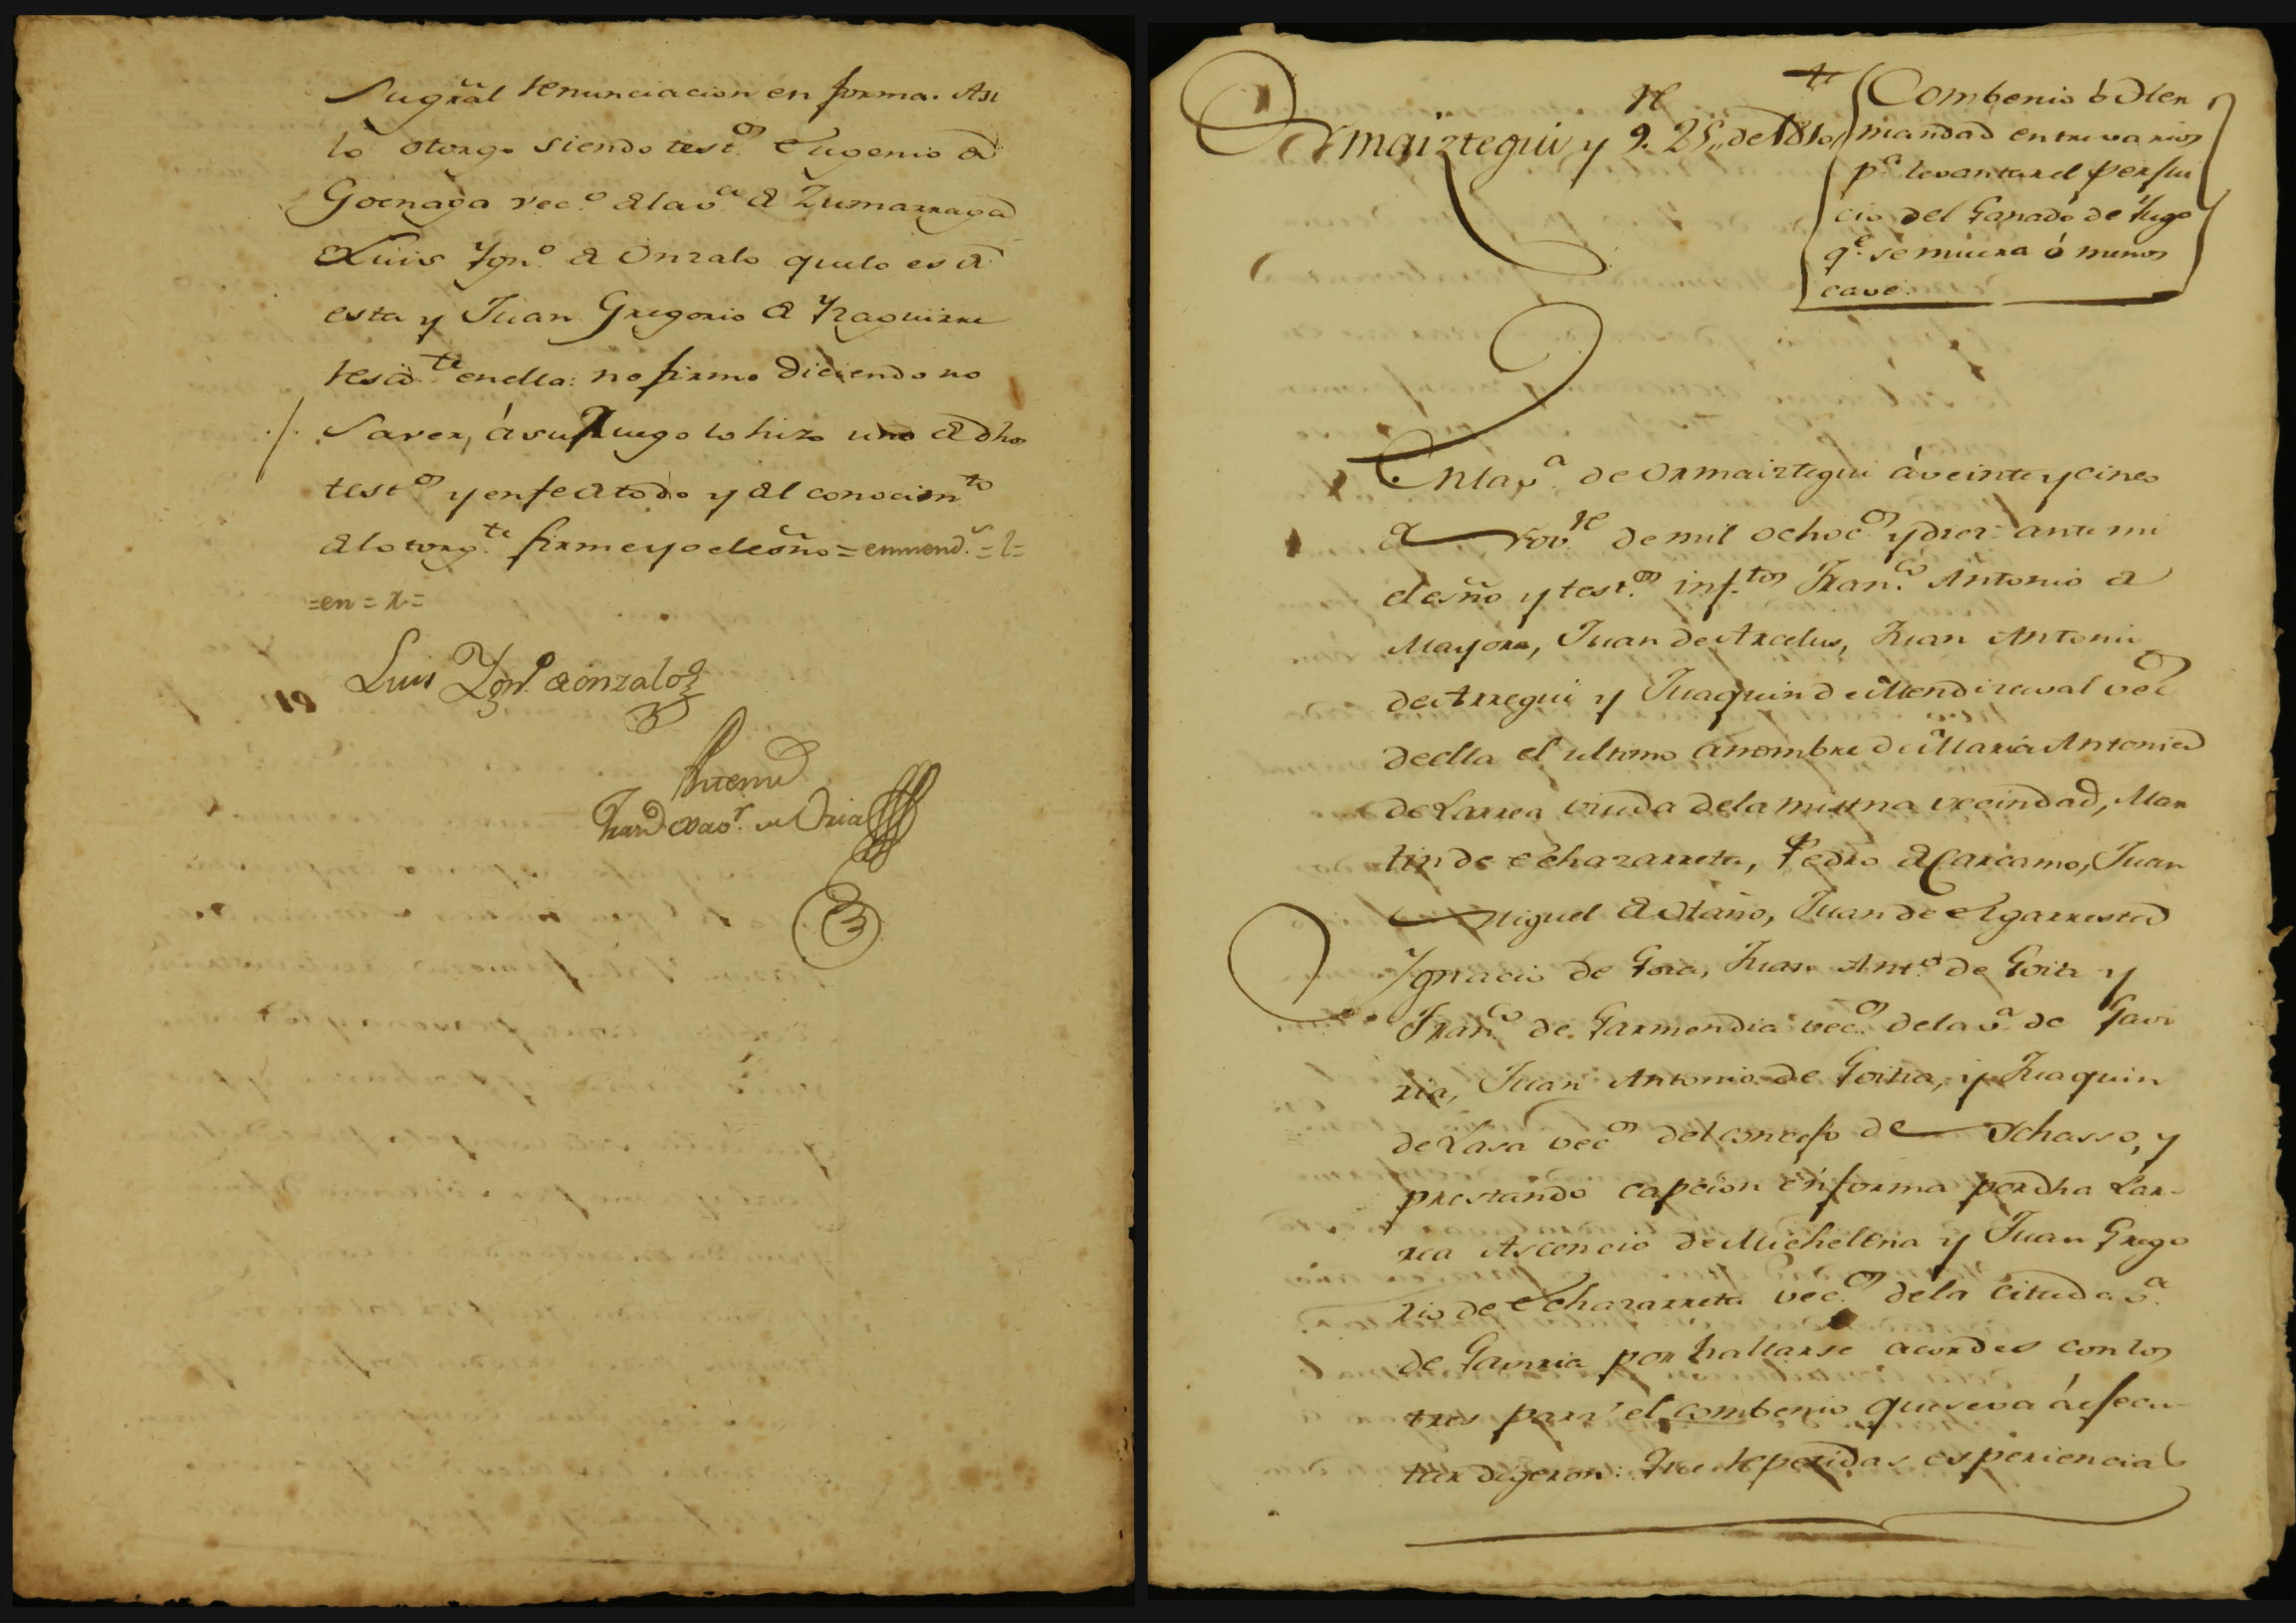 Su gral renunciacion en forma. Asi
lo otorgo siendo testos Eugenio de
Goenaga veco de la va de Zumarraga
Luis Ygno de Onzalo que lo es de
esta y Juan Gregorio de Yzaguirre
reside en ella: no firmo diciendo no
Saver, á su Ruego lo hizo uno de dhos
testos y en fe de todo y del conocimto
del otorgte firme yo el esño = enmend.s = l =
= en = x =
Luis Ygno de onzalo
Antemi
Franco Xavr de Oria
Ormaiztegui y 9re 25,, de 1810
Combenio ó Her
mandad entre varios
pa levantar el perjui
cio del Ganado de Yugo
qe se muera ó menos
cave.
En la va de Ormaiztegui á veinte y cinco
de Novre de mil ochocos y diez: ante mi
el esño y testos inftos Franco Antonio de
Mayora, Juan de Arcelus, Juan Antonio
de Arregui y Juaquin de Mendizaval vecos
de ella el ultimo a nombre de Maria Antonia
de Larrea viuda de la misma vecindad, Mar
tin de Echazarreta, Pedro de Carcamo, Juan
Miguel de Otaño, Juan de Elgarresta
Ygnacio de Goia, Juan Anto de Goia y
Franco de Garmendia vecos de la va de Gavi
ria, Juan Antonio de Goitia, y Juaquin
de Lasa vecos del concejo de Ychasso, y
prestando capcion en forma por dha Lar-
rea Ascencio de Michelena y Juan Grego
rio de Echazarreta vecos de la citada va
de Gaviria por hallarse acordes con los
tres para el combenio que se va á efec
tuar digeron: Que repetidas esperiencias